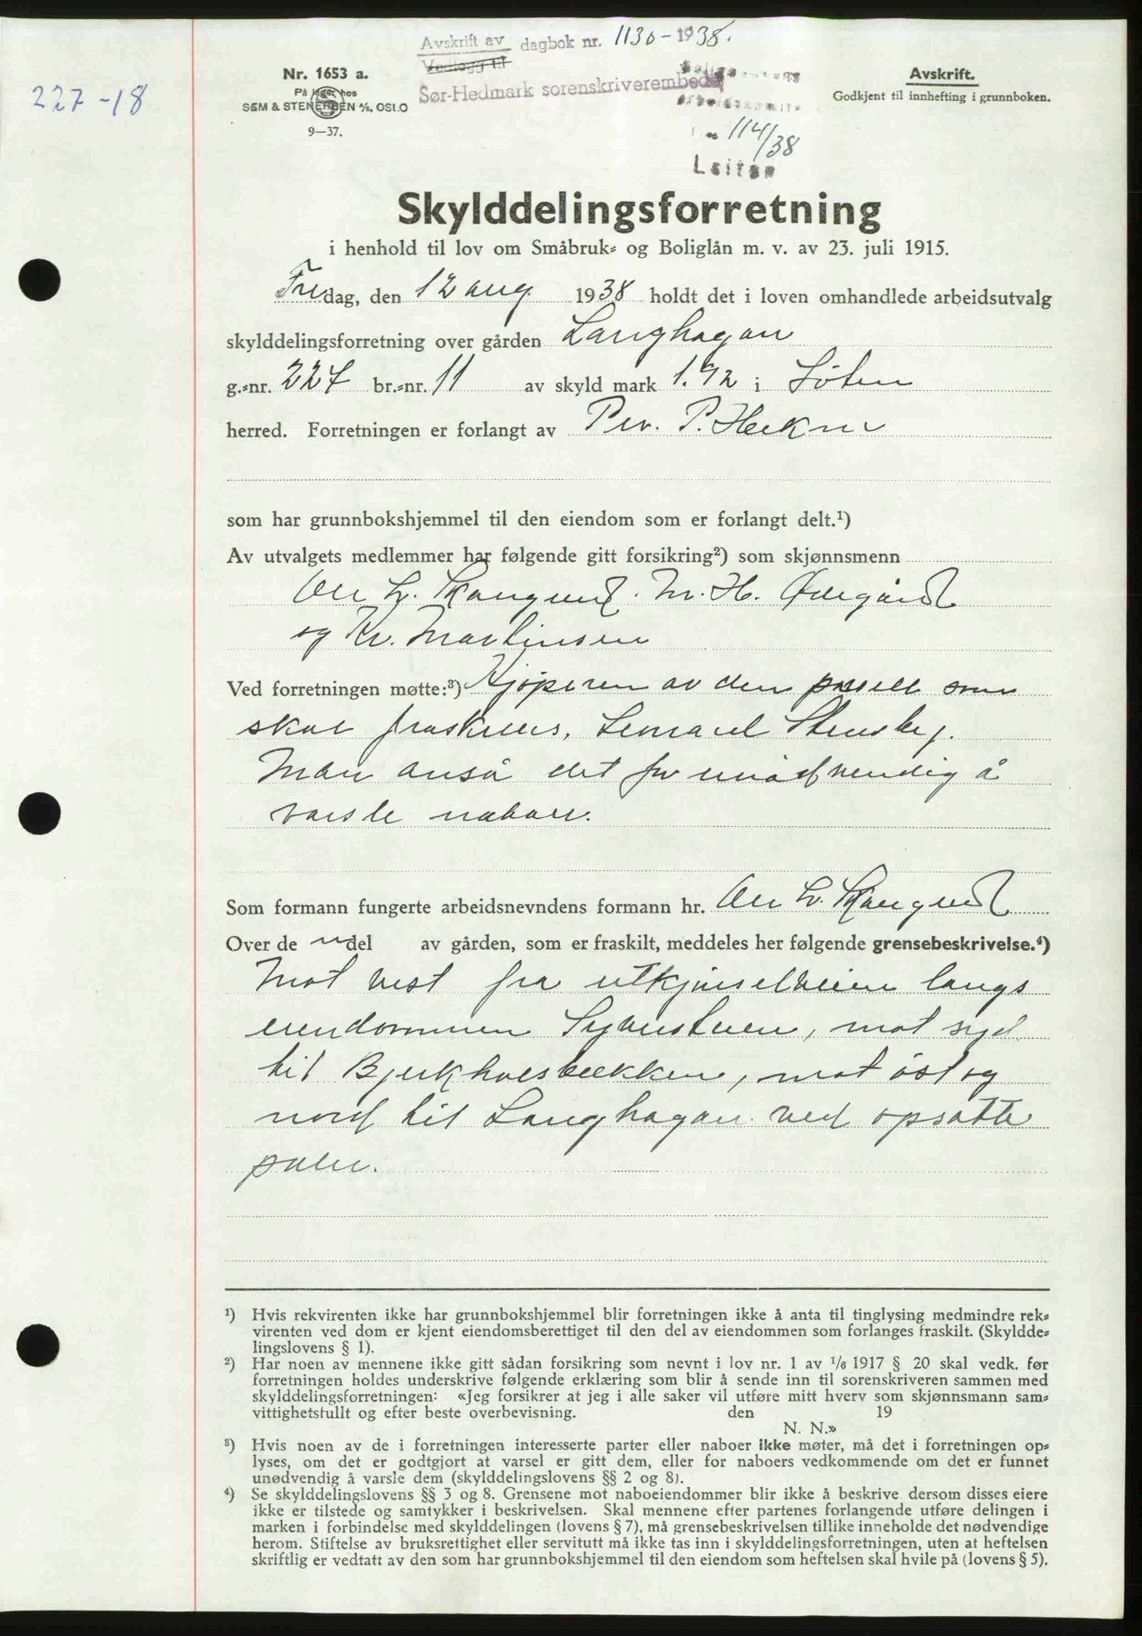 Avskrift av dagbok nr. 1130-1938.
Vedlegg til
Sør-Hedmark sorenskriverembede
227-18
Nr. 1653 a.
På lager hos
SEM & STENERSEN A/S, OSLO
9—37.
114/38
Løiten
Avskrift.
Godkjent til innhefting i grunnboken.
Skylddelingsforretning
i henhold til lov om Småbruk- og Boliglån m. v. av 23. juli 1915.
Fredag, den 12 aug 1938 holdt det i loven omhandlede arbeidsutvalg
skylddelingsforretning over gården Langhagan
g.-nr. 227 br.-nr. 11 av skyld mark 1.92 i Løten
herred. Forretningen er forlangt av Per. P. Hekne
som har grunnbokshjemmel til den eiendom som er forlangt delt.¹)
Av utvalgets medlemmer har følgende gitt forsikring²) som skjønnsmenn
M. H. Ødegård
og Kr. Martinsen
Ved forretningen møtte:³) Kjøperen av den parsell som
skal fraskilles, Lennard Stensby.
Man anså det for unødvendig å
varsle naboer.
Som formann fungerte arbeidsnevndens formann hr.
Over de n del av gården, som er fraskilt, meddeles her følgende grensebeskrivelse.⁴)
Mot vest fra utkjørselveien langs
eiendommen Syverstuen, mot syd
til Bjerkholsbekken, mot øst og
nord til Langhagan ved opsatte
peler.
¹) Hvis rekvirenten ikke har grunnbokshjemmel blir forretningen ikke å anta til tinglysing medmindre rek-
virenten ved dom er kjent eiendomsberettiget til den del av eiendommen som forlanges fraskilt. (Skyldde-
lingslovens § 1).
²) Har noen av mennene ikke gitt sådan forsikring som nevnt i lov nr. 1 av 1/6 1917 § 20 skal vedk. før
forretningen holdes underskrive følgende erklæring som blir å sende inn til sorenskriveren sammen med
skylddelingsforretningen: «Jeg forsikrer at jeg i alle saker vil utføre mitt hverv som skjønnsmann sam-
vittighetsfullt og efter beste overbevisning. den 19
N. N.»
³) Hvis noen av de i forretningen interesserte parter eller naboer ikke møter, må det i forretningen op-
lyses, om det er godtgjort at varsel er gitt dem, eller for naboers vedkommende om det er funnet
unødvendig å varsle dem (skylddelingslovens §§ 2 og 8).
⁴) Se skylddelingslovens §§ 3 og 8. Grensene mot naboeiendommer blir ikke å beskrive dersom disses eiere
ikke er tilstede og samtykker i beskrivelsen. Skal mennene efter partenes forlangende utføre delingen i
marken i forbindelse med skylddelingen (lovens § 7), må grensebeskrivelsen tillike inneholde det nødvendige
herom. Stiftelse av bruksrettighet eller servitutt må ikke tas inn i skylddelingsforretningen, uten at heftelsen
skriftlig er vedtatt av den som har grunnbokshjemmel til den eiendom som heftelsen skal hvile på (lovens § 5).